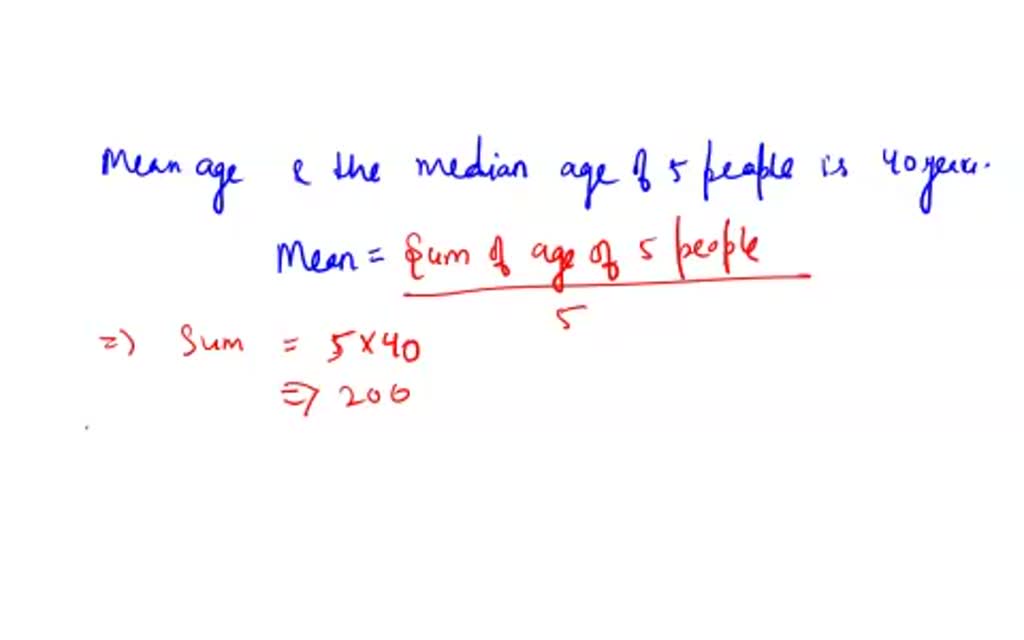 Mean age & the median age of 5 people is 40 years.
Mean = Sum of age of 5 people
5
=> Sum = 5×40
=> 200